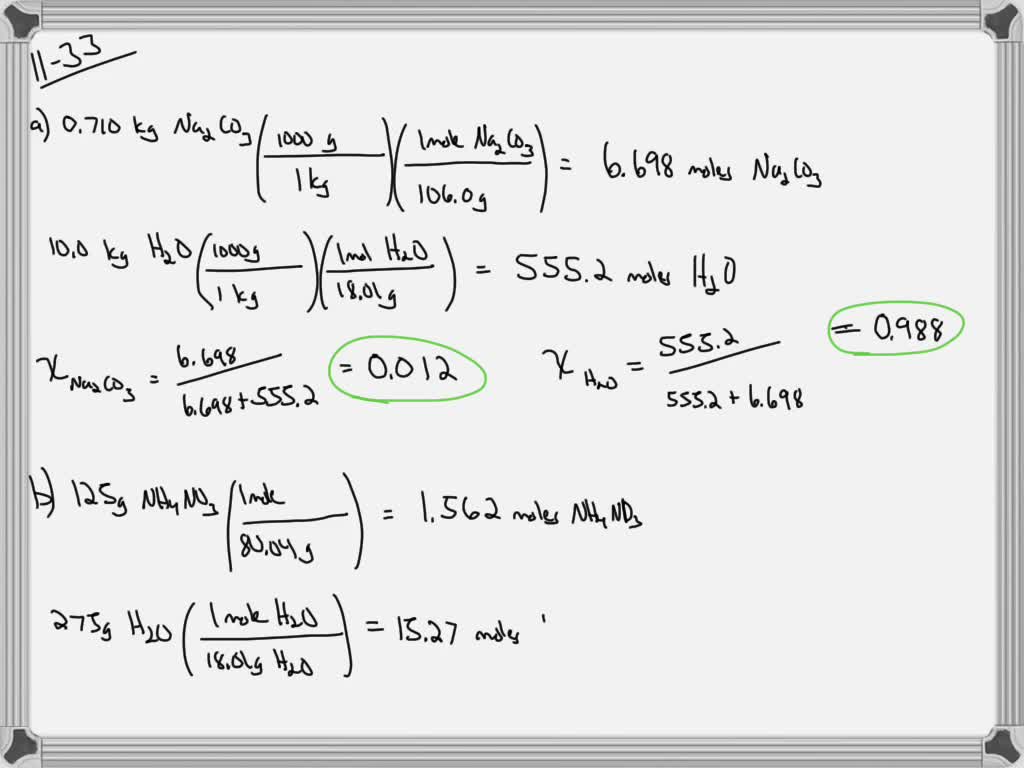 11-33
a) 0.710 kg Na₂CO₃ (1000 g / 1 kg) (1 mole Na₂CO₃ / 106.0 g) = 6.698 moles Na₂CO₃
10.0 kg H₂O (1000 g / 1 kg) (1 mol H₂O / 18.01 g) = 555.2 moles H₂O
χ Na₂CO₃ = 6.698 / 6.698 + 555.2 = 0.012
χ H₂O = 555.2 / 555.2 + 6.698 = 0.988
b) 125 g NH₄NO₃ (1 mole / 80.04 g) = 1.562 moles NH₄NO₃
275 g H₂O (1 mole H₂O / 18.01 g H₂O) = 15.27 moles